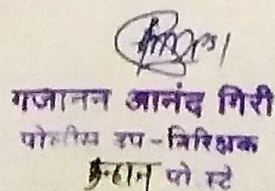 गजानन आनंद गिरी
पोलीस उप-निरिक्षक
कन्हान पो स्टे